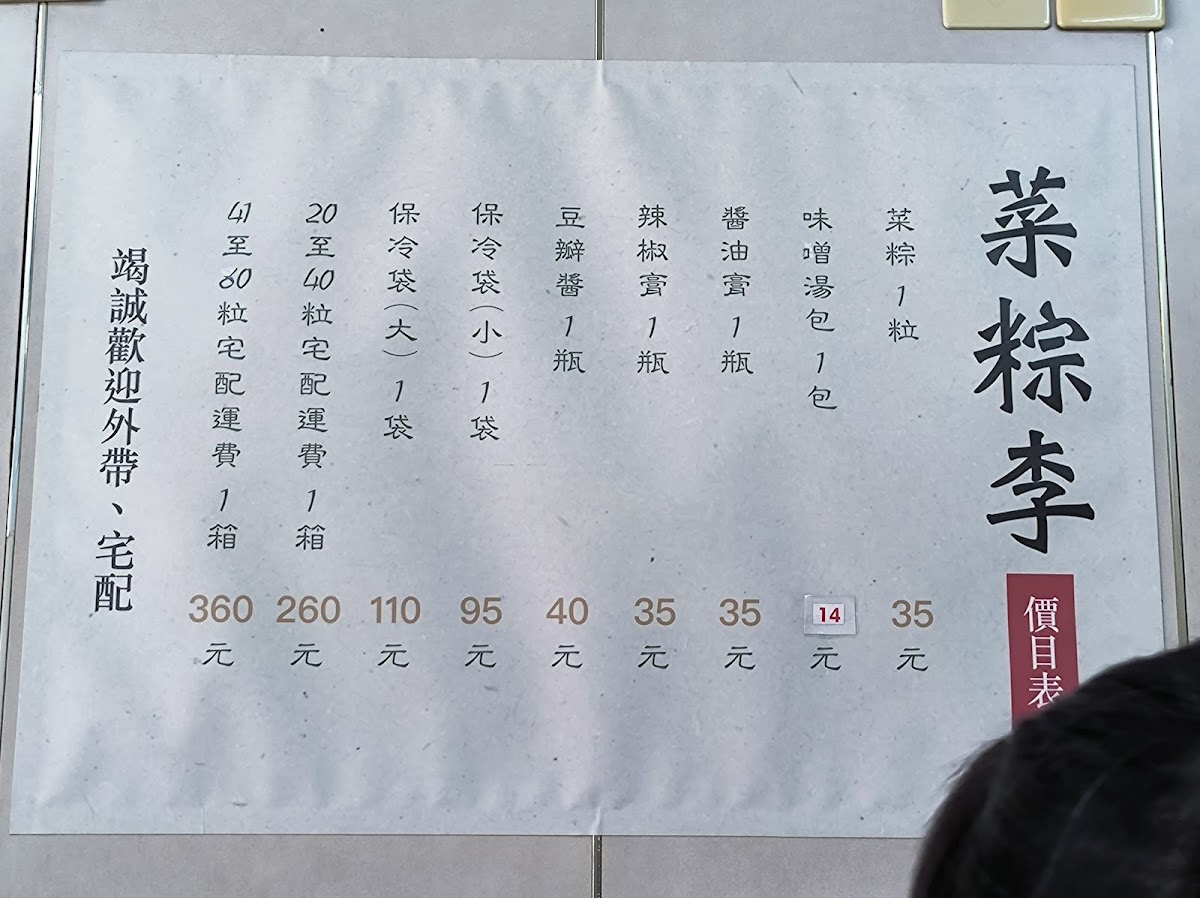 菜粽李
價目表
菜粽1粒 35元
味噌湯包1包 14元
醬油膏1瓶 35元
辣椒膏1瓶 35元
豆瓣醬1瓶 40元
保冷袋(小)1袋 95元
保冷袋(大)1袋 110元
20至40粒宅配運費1箱 260元
41至60粒宅配運費1箱 360元
竭誠歡迎外帶、宅配